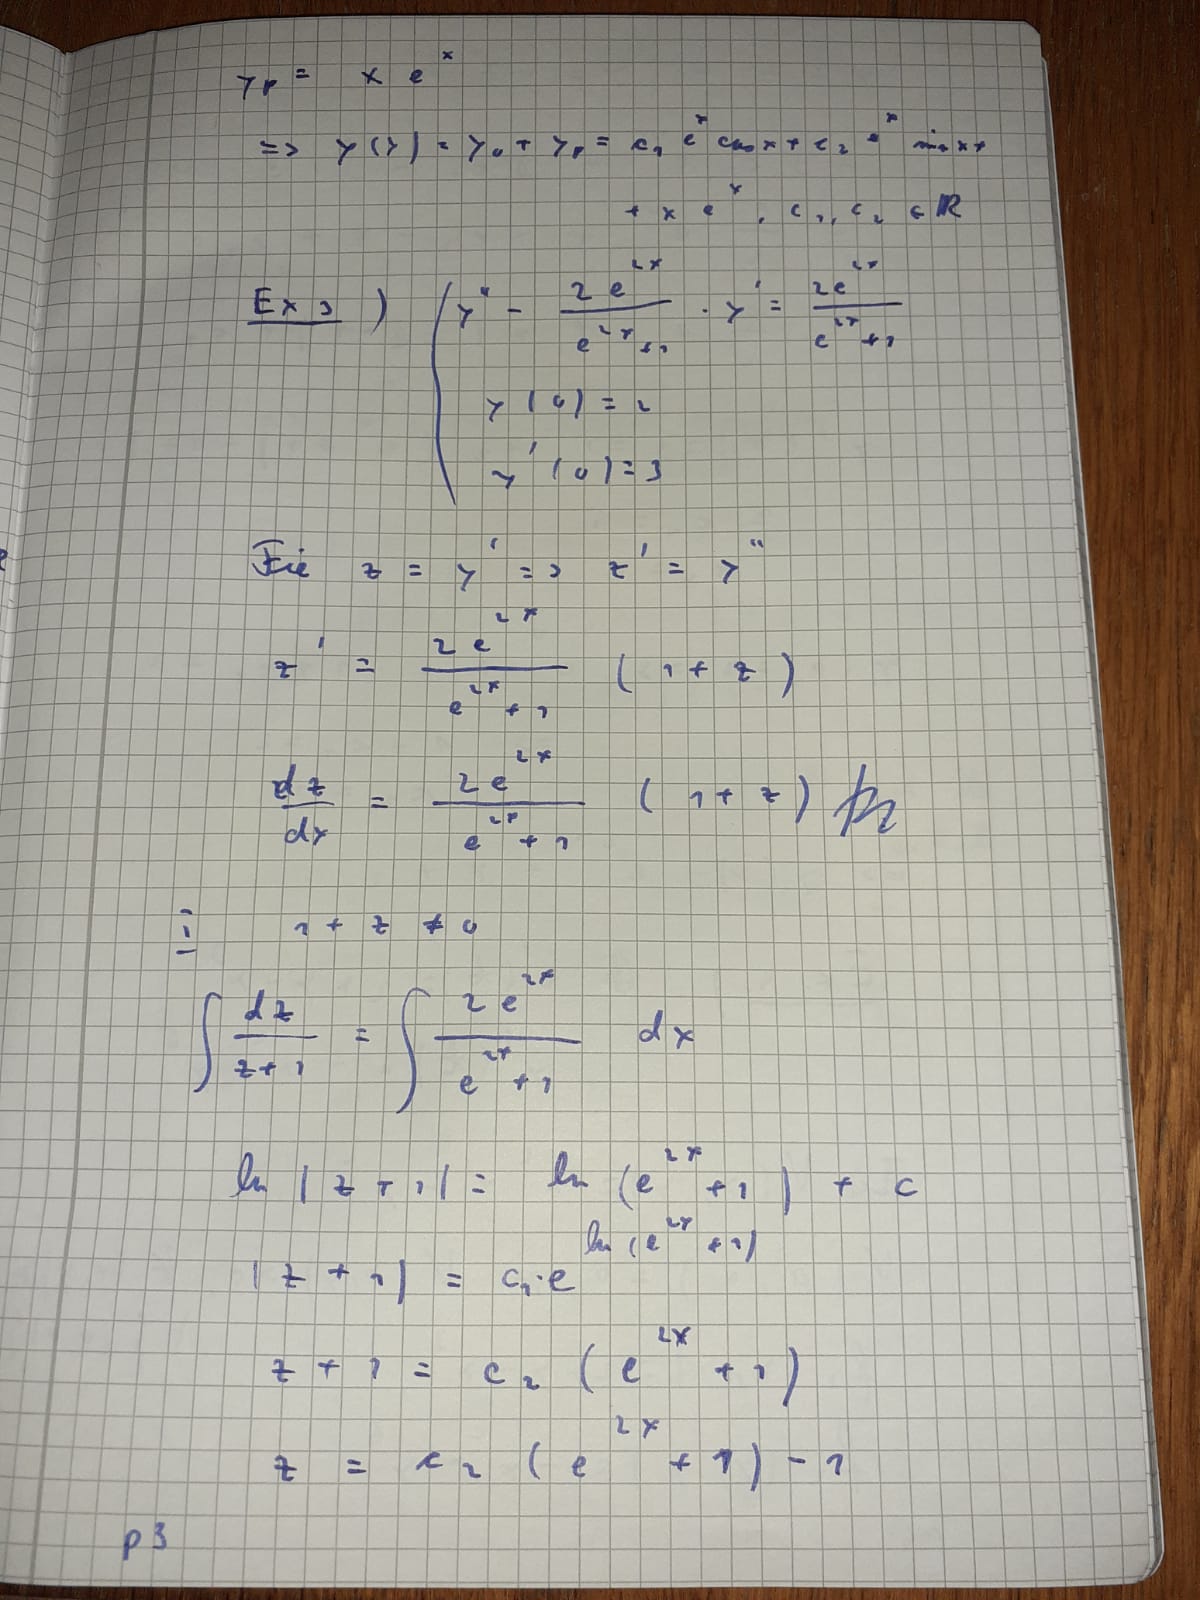 y_p = x e^x
=> y(y) = y_0 + y_p = c_1 e^x cos x + c_2 e^x sin x +
+ x e^x, c_1, c_2 ∈ ℝ
Ex 3) { y'' - 2e^{2x}/(e^{2x}+1) · y' = 2e^{2x}/(e^{2x}+1)
y(0) = 2
y'(0) = 3
Fie z = y' => z' = y''
z' = 2e^{2x}/(e^{2x}+1) (1+z)
dz/dx = 2e^{2x}/(e^{2x}+1) (1+z)
i 1+z ≠ 0
∫ dz/(z+1) = ∫ 2e^{2x}/(e^{2x}+1) dx
ln |z+1| = ln (e^{2x}+1) + c
|z+1| = c_1 · e^{ln(e^{2x}+1)}
z+1 = c_2 (e^{2x}+1)
z = c_2 (e^{2x}+1) - 1
p3